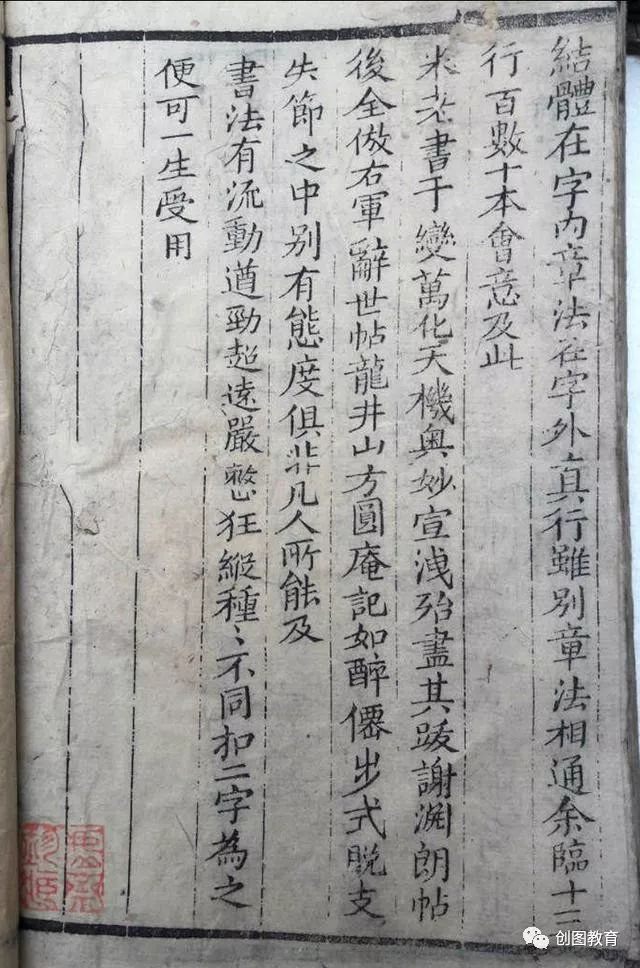 結體在字内章法在字外真行雖别章法相通余臨十三
行百數十本會意及此
米老書千變萬化天機奥妙宣洩殆盡其跋謝淵朗帖
後全倣右軍辭世帖龍井山方圓庵記如醉僊步式脱支
失節之中别有態度俱非凡人所能及
書法有流動遒勁超遠嚴整狂縱種〻不同扣二字為之
便可一生受用
创图教育